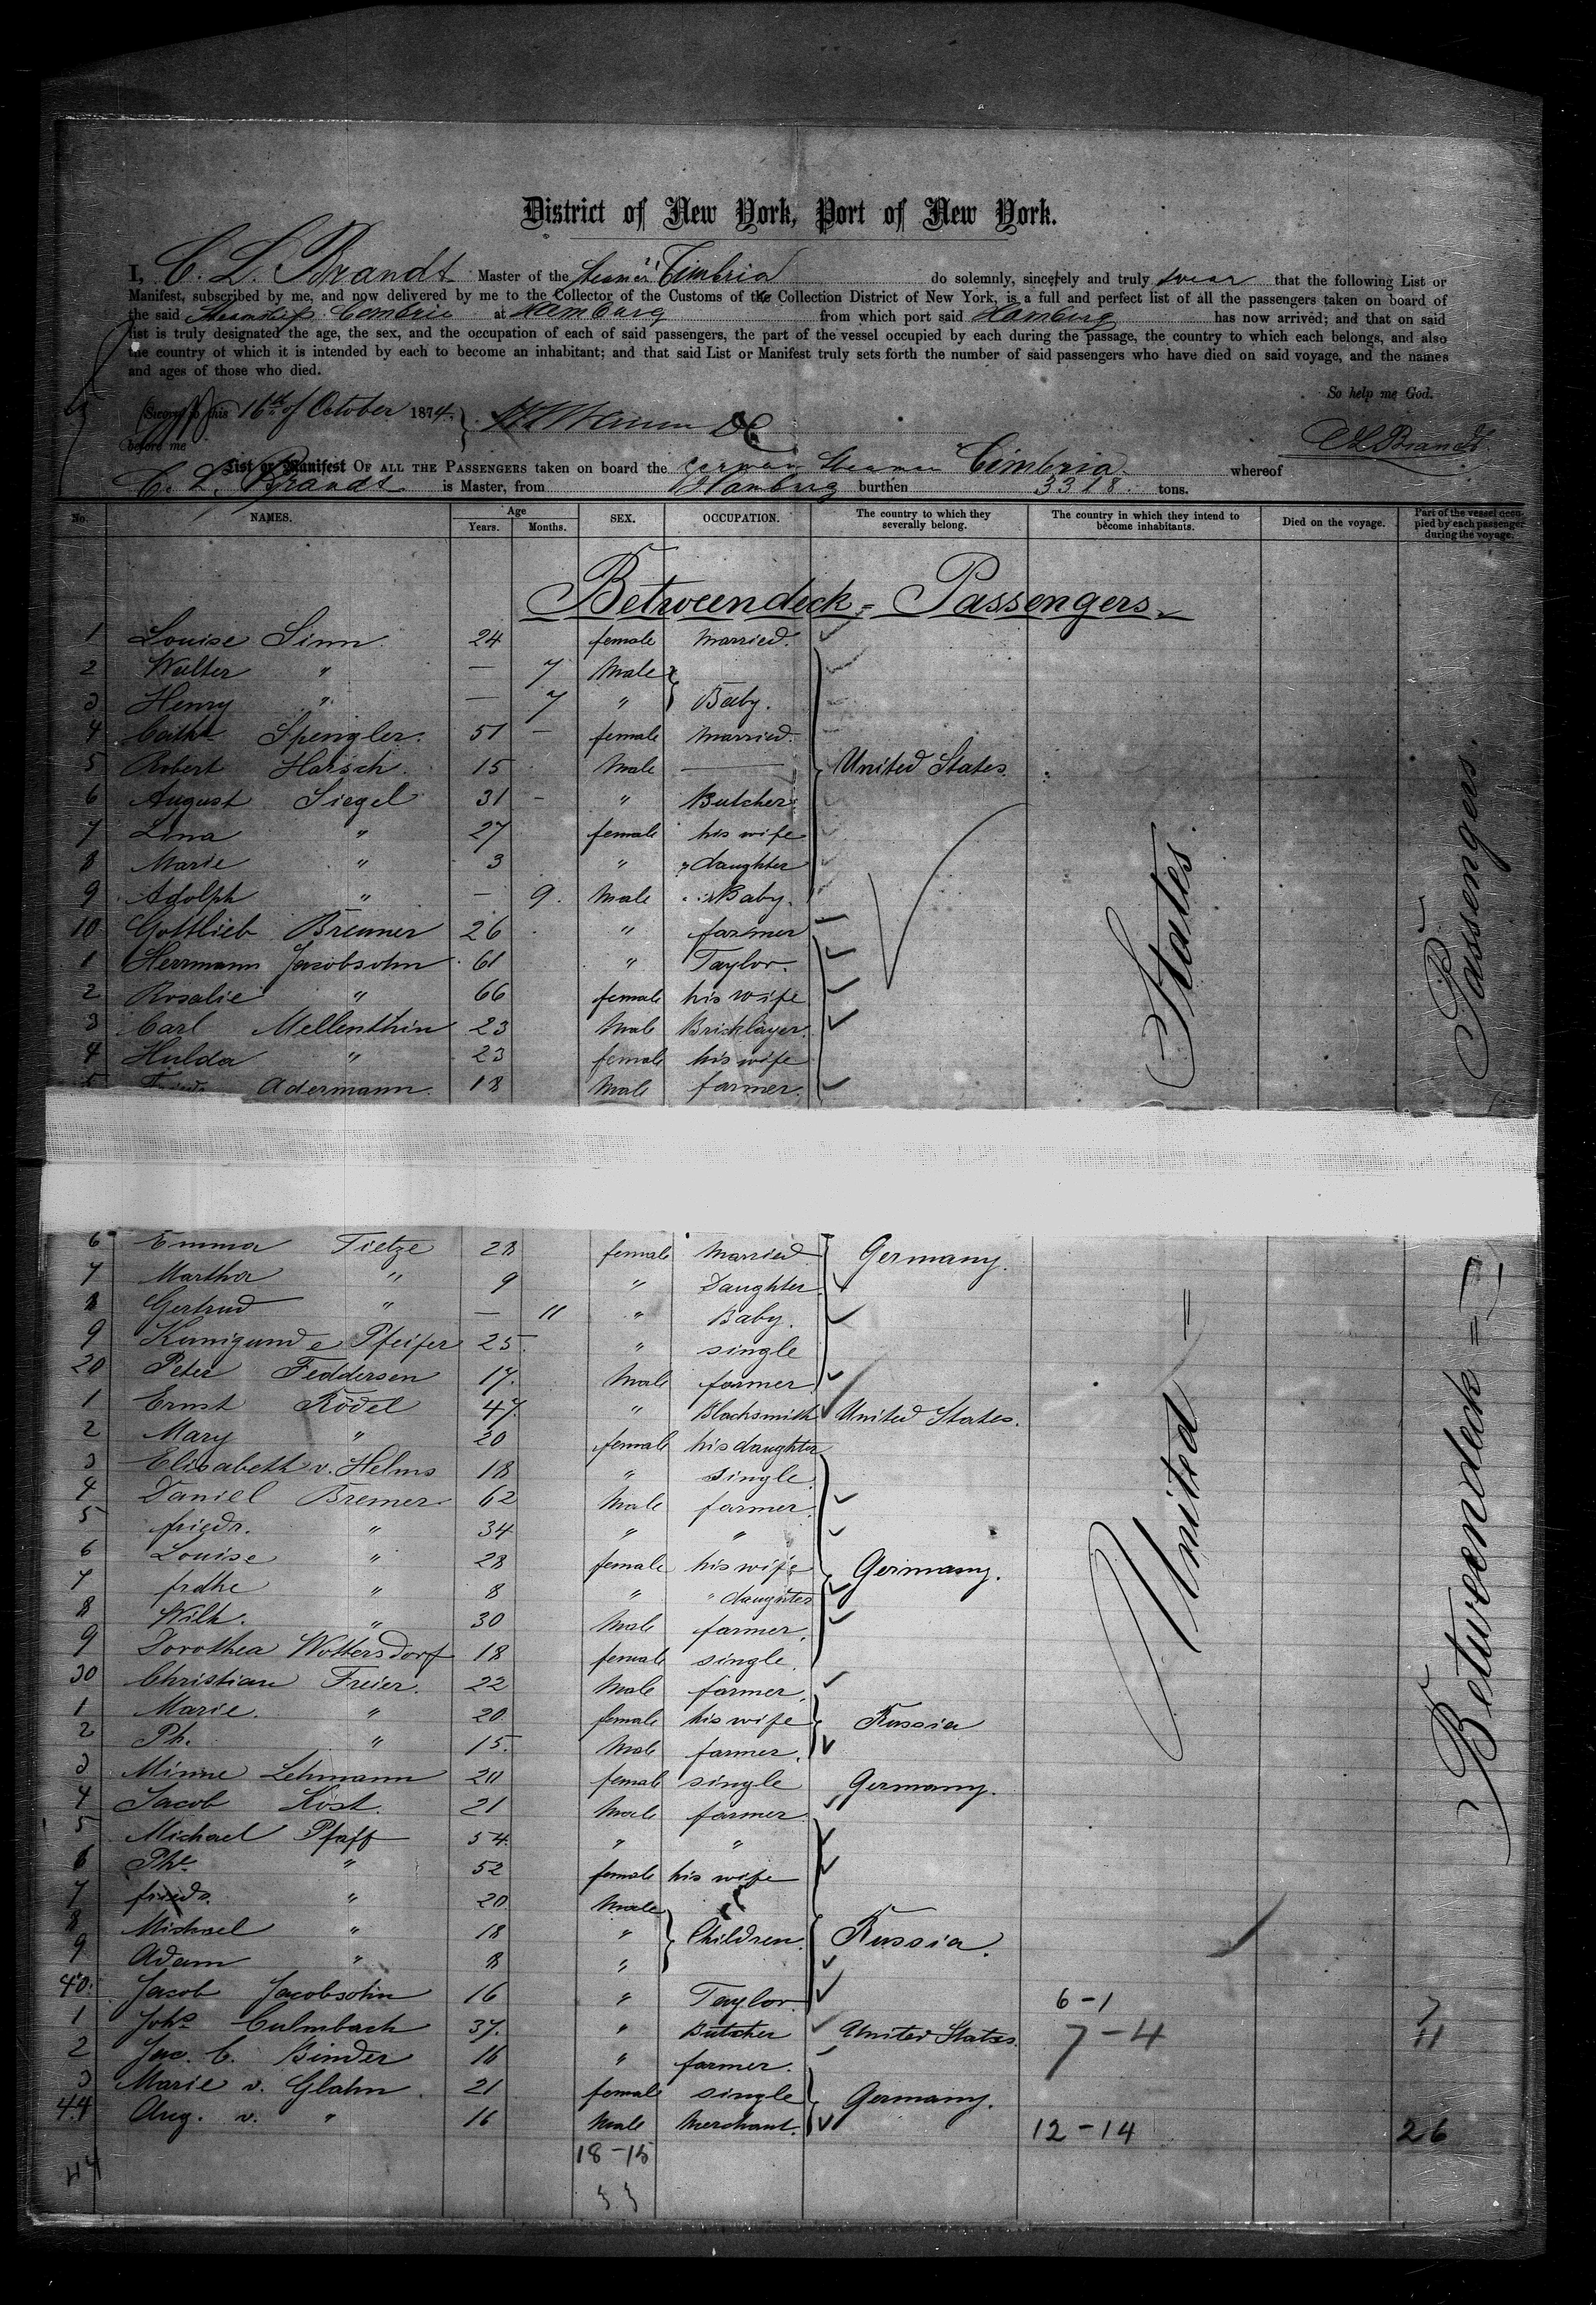 District of New York, Port of New York.
I, C. L. Brandt Master of the Steamer Cimbria do solemnly, sincerely and truly swear that the following List or
Manifest, subscribed by me, and now delivered by me to the Collector of the Customs of the Collection District of New York, is a full and perfect list of all the passengers taken on board of
the said Steamship Cimbria at Hamburg from which port said Hamburg has now arrived; and that on said
list is truly designated the age, the sex, and the occupation of each of said passengers, the part of the vessel occupied by each during the passage, the country to which each belongs, and also
the country of which it is intended by each to become an inhabitant; and that said List or Manifest truly sets forth the number of said passengers who have died on said voyage, and the names
and ages of those who died.
So help me God.
Sworn to this 16th of October 1874.
before me
C L Brandt
List or Manifest OF ALL THE PASSENGERS taken on board the german Steamer Cimbria whereof
C. L. Brandt is Master, from Hamburg burthen 3318. tons.
No. NAMES. Age Years. Months. SEX. OCCUPATION. The country to which they severally belong. The country in which they intend to become inhabitants. Died on the voyage. Part of the vessel occupied by each passenger during the voyage.
Betweendeck - Passengers
1 Louise Sinn 24 female Married.
2 Walter " — 7 Male
3 Henry " — 7 " Baby.
4 Cathe Spengler. 51 — female Married.
5 Robert Harsch. 15 Male — United States.
6 August Siegel 31 - " Butcher
7 Lina " 27 female his wife
8 Marie " 3 " " daughter
9 Adolph " — 9. Male " Baby.
10 Gottlieb Brenner 26 " farmer
1 Herrmann Jacobsohn 61 " Taylor.
2 Rosalie " 66 female his wife
3 Carl Mellenthin 23 Male Bricklayer.
4 Hulda " 23 female his wife
5 Friedr. Adermann. 18 Male farmer.
6 Emma Tietze 28 female Married Germany.
7 Martha " 9 " Daughter
8 Gertrud " — 11 " Baby.
9 Kunigunde Pfeifer 25. " single
20 Peter Feddersen 17. Male farmer
1 Ernst Rödel 47. " Blacksmith United States.
2 Mary " 20 female his daughter
3 Elisabeth v. Helms 18 " single.
4 Daniel Bremer. 62 Male farmer.
5 friedr. " 34 " "
6 Louise " 28 female his wife Germany.
7 frdke " 8 " " daughter
8 Wilh. " 30 Male farmer.
9 Dorothea Woltersdorf 18 female single.
30 Christian Freier. 22 Male farmer.
1 Marie. " 20. female his wife Russia
2 Ph. " 15. Male farmer.
3 Minne Lehmann 20 female single Germany.
4 Jacob Köst. 21 Male farmer
5 Michael Pfaff 54. " "
6 Phe " 52 female his wife
7 friedr. " 20. Male
8 Michael " 18 " Children. Russia.
9 Adam " 8 "
40. Jacob Jacobsohn 16 " Taylor 6-1
1 Johs Culmbach 37. " Butcher United States. 7-4 11
2 Jac. C. Binder 16 " farmer.
3 Marie v. Glahn. 21 female single Germany.
44 Aug. v. " 16 Male Merchant. 12-14 26
18-15
44
33
United States
Betweendeck = Passengers.